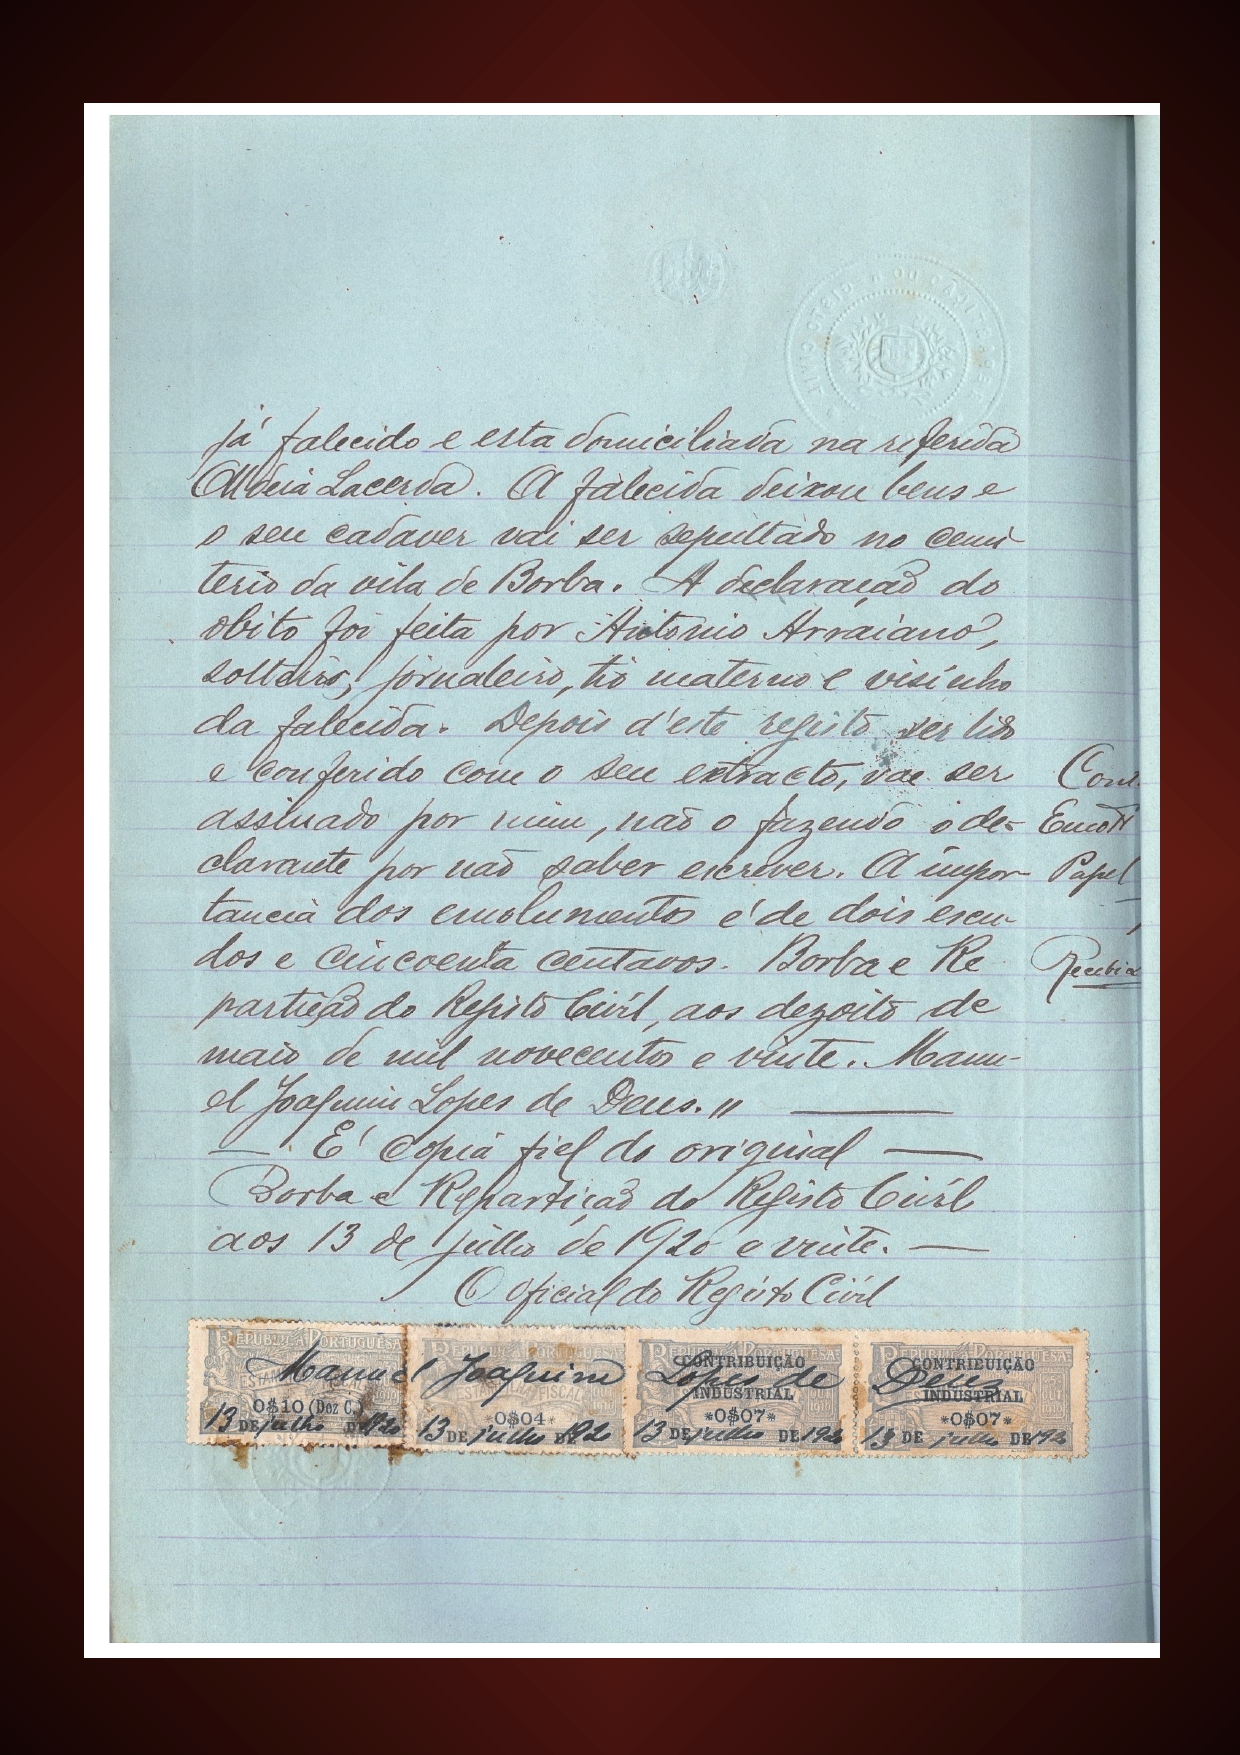 já falecido e esta domiciliada na referida
Aldeia Lacerda. A falecida deixou bens e
o seu cadaver vai ser sepultado no cemi-
terio da vila de Borba. A declaração do
obito foi feita por Antonio Arraiano,
solteiro, jornaleiro, tio materno e visinho
da falecida. Depois d'este registo ser lido
e conferido com o seu extracto, vae ser
assinado por mim, não o fazendo o de-
clarante por não saber escrever. A impor-
tancia dos emolumentos é de dois escu-
dos e cincoenta centavos. Borba e Re
partição do Registo Civil, aos dezoito de
maio de mil novecentos e vinte. Manu-
el Joaquim Lopes de Deus. "
— É copia fiel do original —
Borba e Repartição do Registo Civil
aos 13 de julho de 1920 e vinte. —
O Oficial do Registo Civil
Cont.
Emol
Papel
Recebi
REPUBLICA PORTUGUESA REPUBLICA PORTUGUESA REPUBLICA PORTUGUESA REPUBLICA PORTUGUESA
CONTRIBUIÇÃO CONTRIBUIÇÃO
Manuel Joaquim Lopes de Deus
ESTAMPILHA FISCAL INDUSTRIAL INDUSTRIAL
0$10 (Doz C.) *0$04* *0$07* *0$07*
13 DE julho DE 1920 13 DE julho DE 920 13 DE julho DE 1920 13 DE julho DE 1920